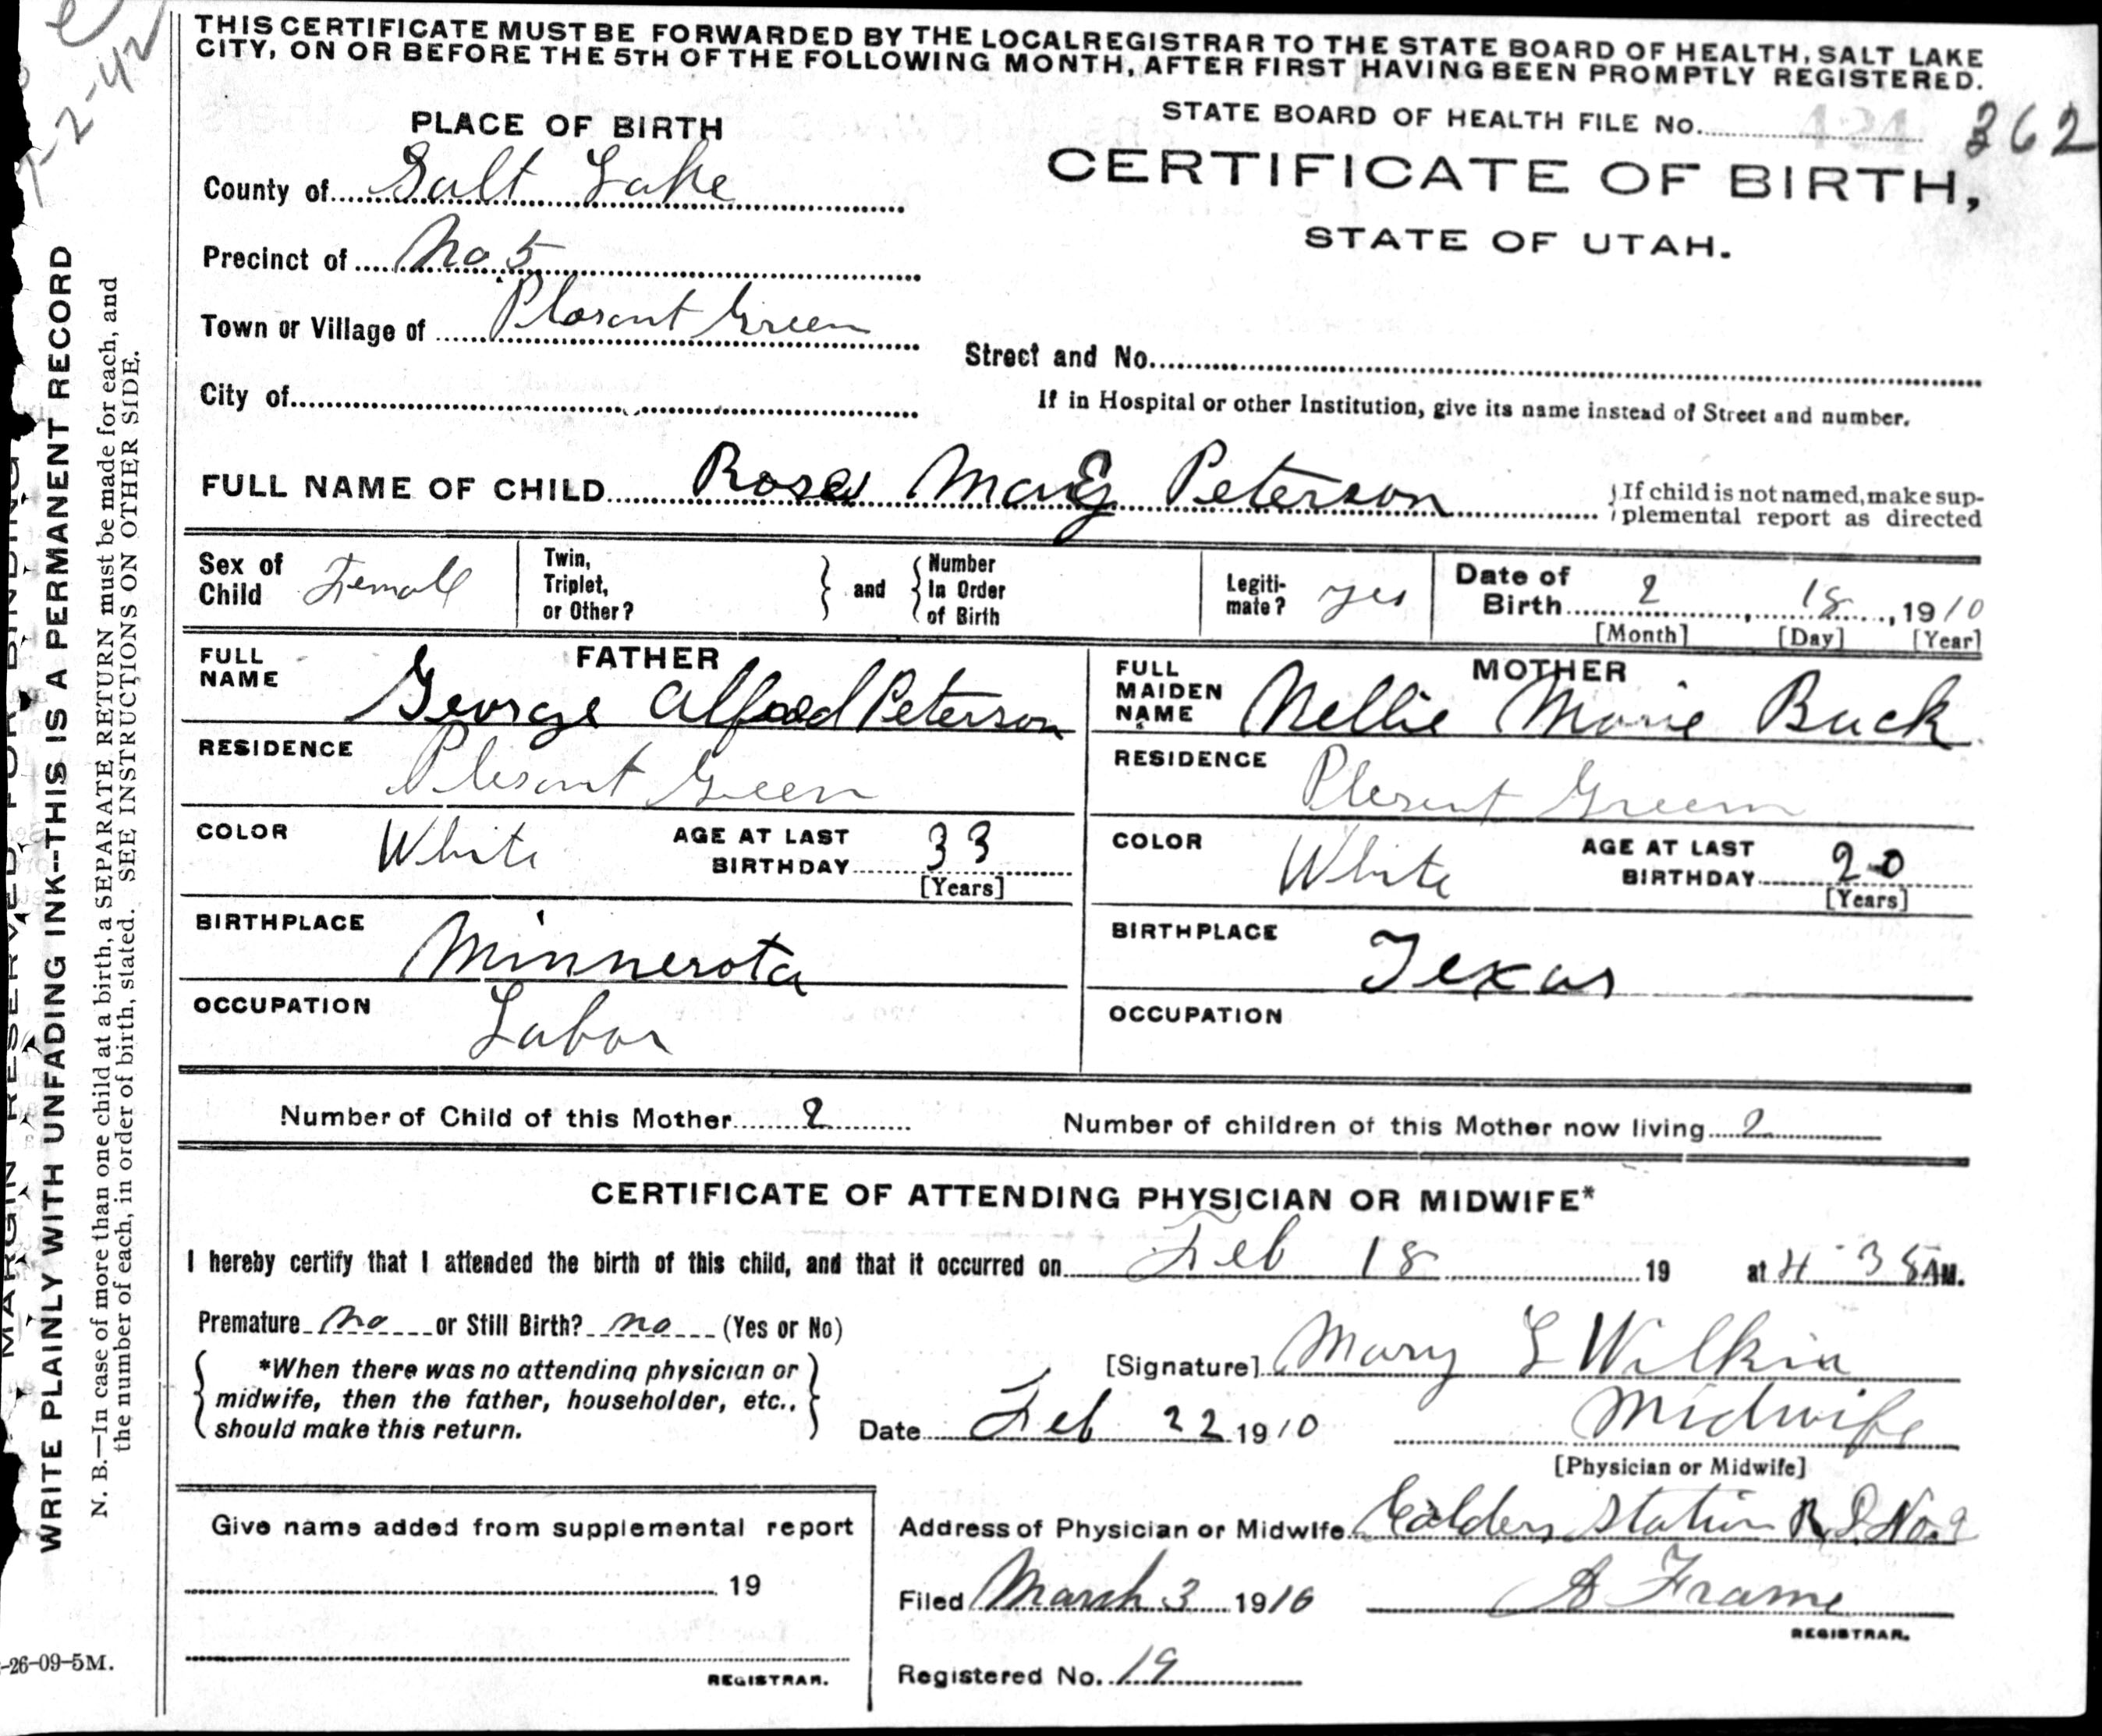 7-2-42
THIS CERTIFICATE MUST BE FORWARDED BY THE LOCAL REGISTRAR TO THE STATE BOARD OF HEALTH, SALT LAKE
CITY, ON OR BEFORE THE 5TH OF THE FOLLOWING MONTH, AFTER FIRST HAVING BEEN PROMPTLY REGISTERED.
STATE BOARD OF HEALTH FILE No. 424 362
CERTIFICATE OF BIRTH,
STATE OF UTAH.
PLACE OF BIRTH
County of Salt Lake
Precinct of No 5
Town or Village of Plasant Green
City of
Street and No.
If in Hospital or other Institution, give its name instead of Street and number.
FULL NAME OF CHILD Peterson
If child is not named, make sup-
plemental report as directed
Sex of Child Female
Twin, Triplet, or Other?
and
Number In Order of Birth
Legiti-mate? yes
Date of Birth 2, 18, 1910
[Month] [Day] [Year]
FATHER
FULL NAME George Alfred Peterson
RESIDENCE Plesant Green
COLOR White
AGE AT LAST BIRTHDAY 33
[Years]
BIRTHPLACE Minnesota
OCCUPATION Labor
MOTHER
FULL MAIDEN NAME Nellie Marie Buck
RESIDENCE Plesent Green
COLOR White
AGE AT LAST BIRTHDAY 20
[Years]
BIRTHPLACE Texas
OCCUPATION
Number of Child of this Mother 2
Number of children of this Mother now living 2
CERTIFICATE OF ATTENDING PHYSICIAN OR MIDWIFE*
I hereby certify that I attended the birth of this child, and that it occurred on Feb 18 19 at 4 35 AM.
Premature no or Still Birth? no (Yes or No)
*When there was no attending physician or
midwife, then the father, householder, etc.,
should make this return.
[Signature] Mary L Wilkin
Date Feb 22 1910
Midwife
[Physician or Midwife]
Give name added from supplemental report
19
REGISTRAR.
Address of Physician or Midwife Calders Station R. D. No. 2
Filed March 3 1910
A Frame
REGISTRAR.
Registered No. 19
MARGIN RESERVED FOR BINDING
WRITE PLAINLY WITH UNFADING INK--THIS IS A PERMANENT RECORD
N. B.—In case of more than one child at a birth, a SEPARATE RETURN must be made for each, and
the number of each, in order of birth, stated. SEE INSTRUCTIONS ON OTHER SIDE.
-26-09-5M.